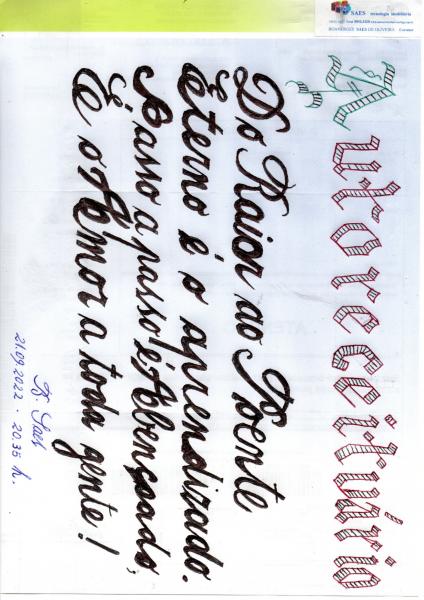 SAES - tecnologia imobiliária
SAES DE OLIVEIRA
Autoreceituário
Do Raiar ao Poente
Eterno é o aprendizado.
Passo a passo é Abençoado,
É o Amor a toda gente!
R. Saes
21.09.2022 - 20:35 h.